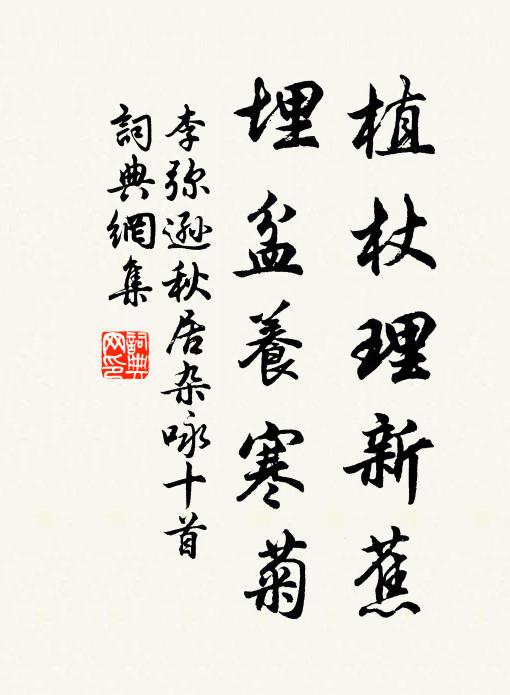 植杖理新蕉
埋盆養寒菊
李弥遜秋居杂咏十首
詞典網集
詞典網印